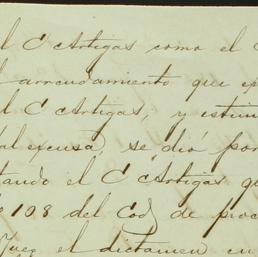 el C Artigas como el
el arrendamiento que
el C Artigas, y
se dió por
tando el C Artigas
108 del Cod de proc
Juez el dictamen en